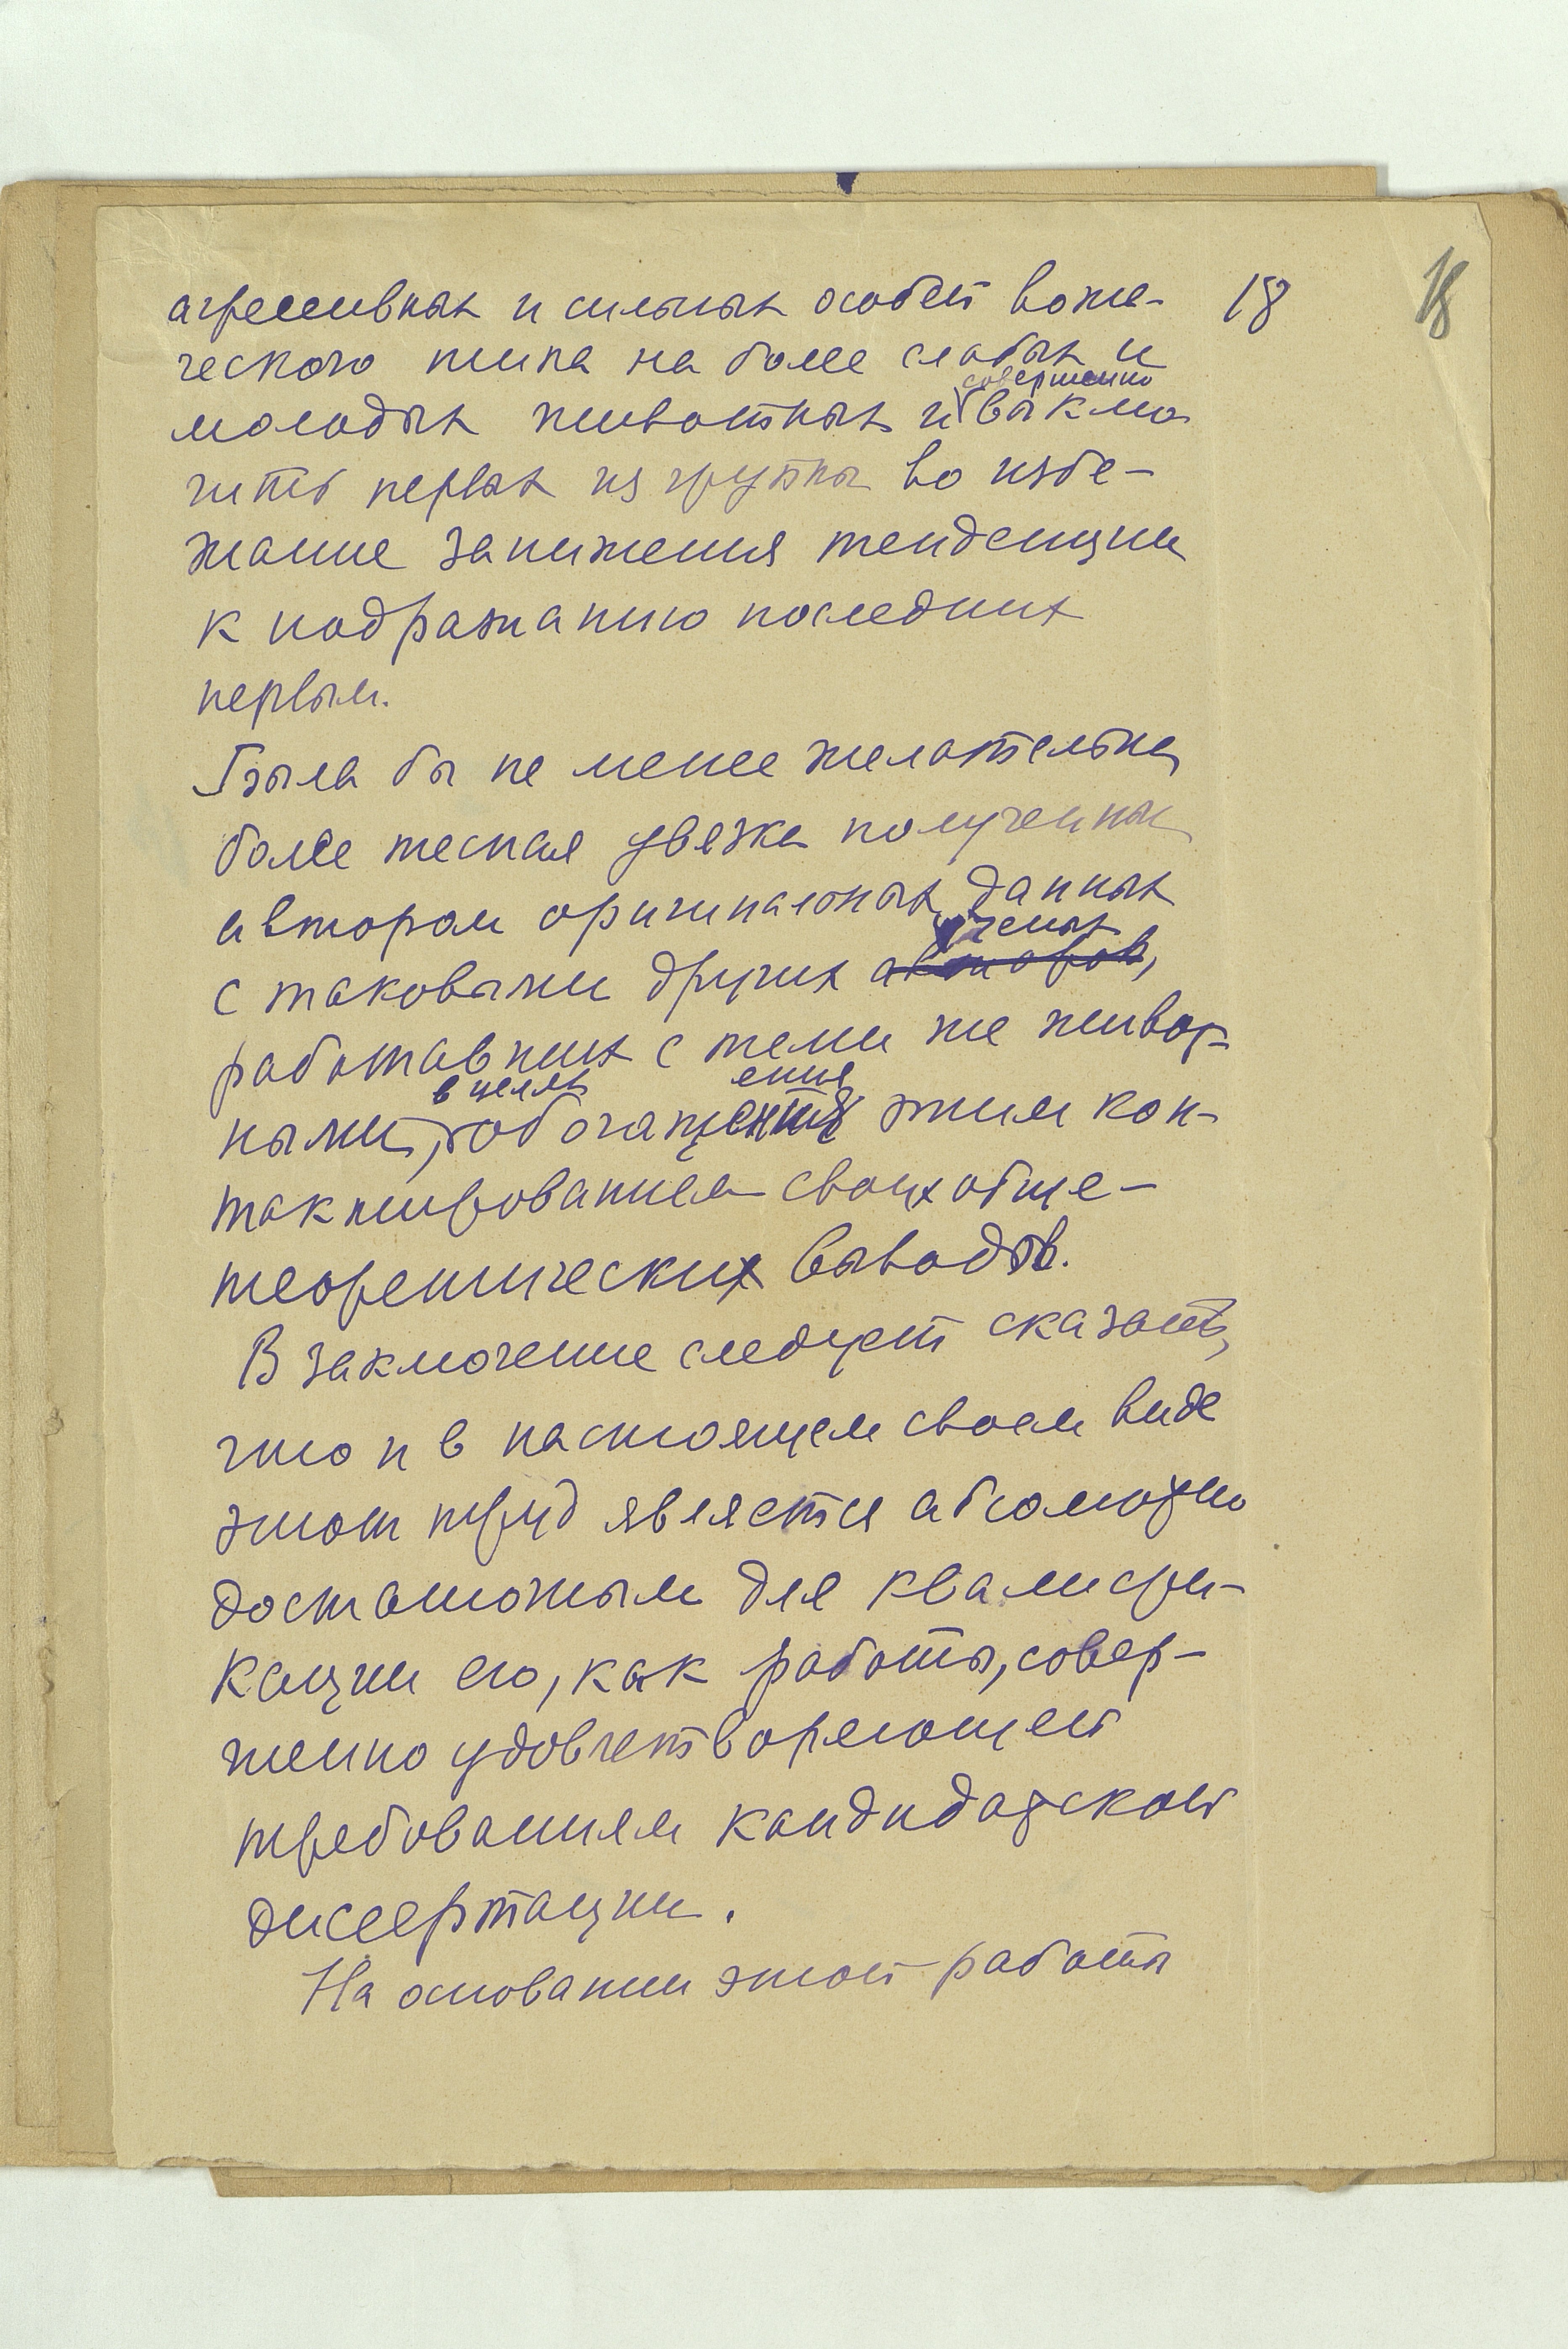 агрессивных и сильных особей воже- 18 18
ческого типа на более слабых и
совершенно
молодых животных и выклю
чить первых из группы во избе-
жание занижения тенденции
к подражанию последних
первым.
Была бы не менее желательна
более тесная увязка полученных
автором оригинальных данных
ученых
с таковыми других авторов,
работавших с теми же живот-
в целях ения
ными, обогащения этим кон-
тактированием своих обще-
теоретических выводов.
В заключение следует сказать,
что и в настоящем своем виде
этот труд является абсолютно
достаточным для квалифи-
кации его, как работы, совер-
шенно удовлетворяющей
требованиям кандидатской
диссертации.
На основании этой работы